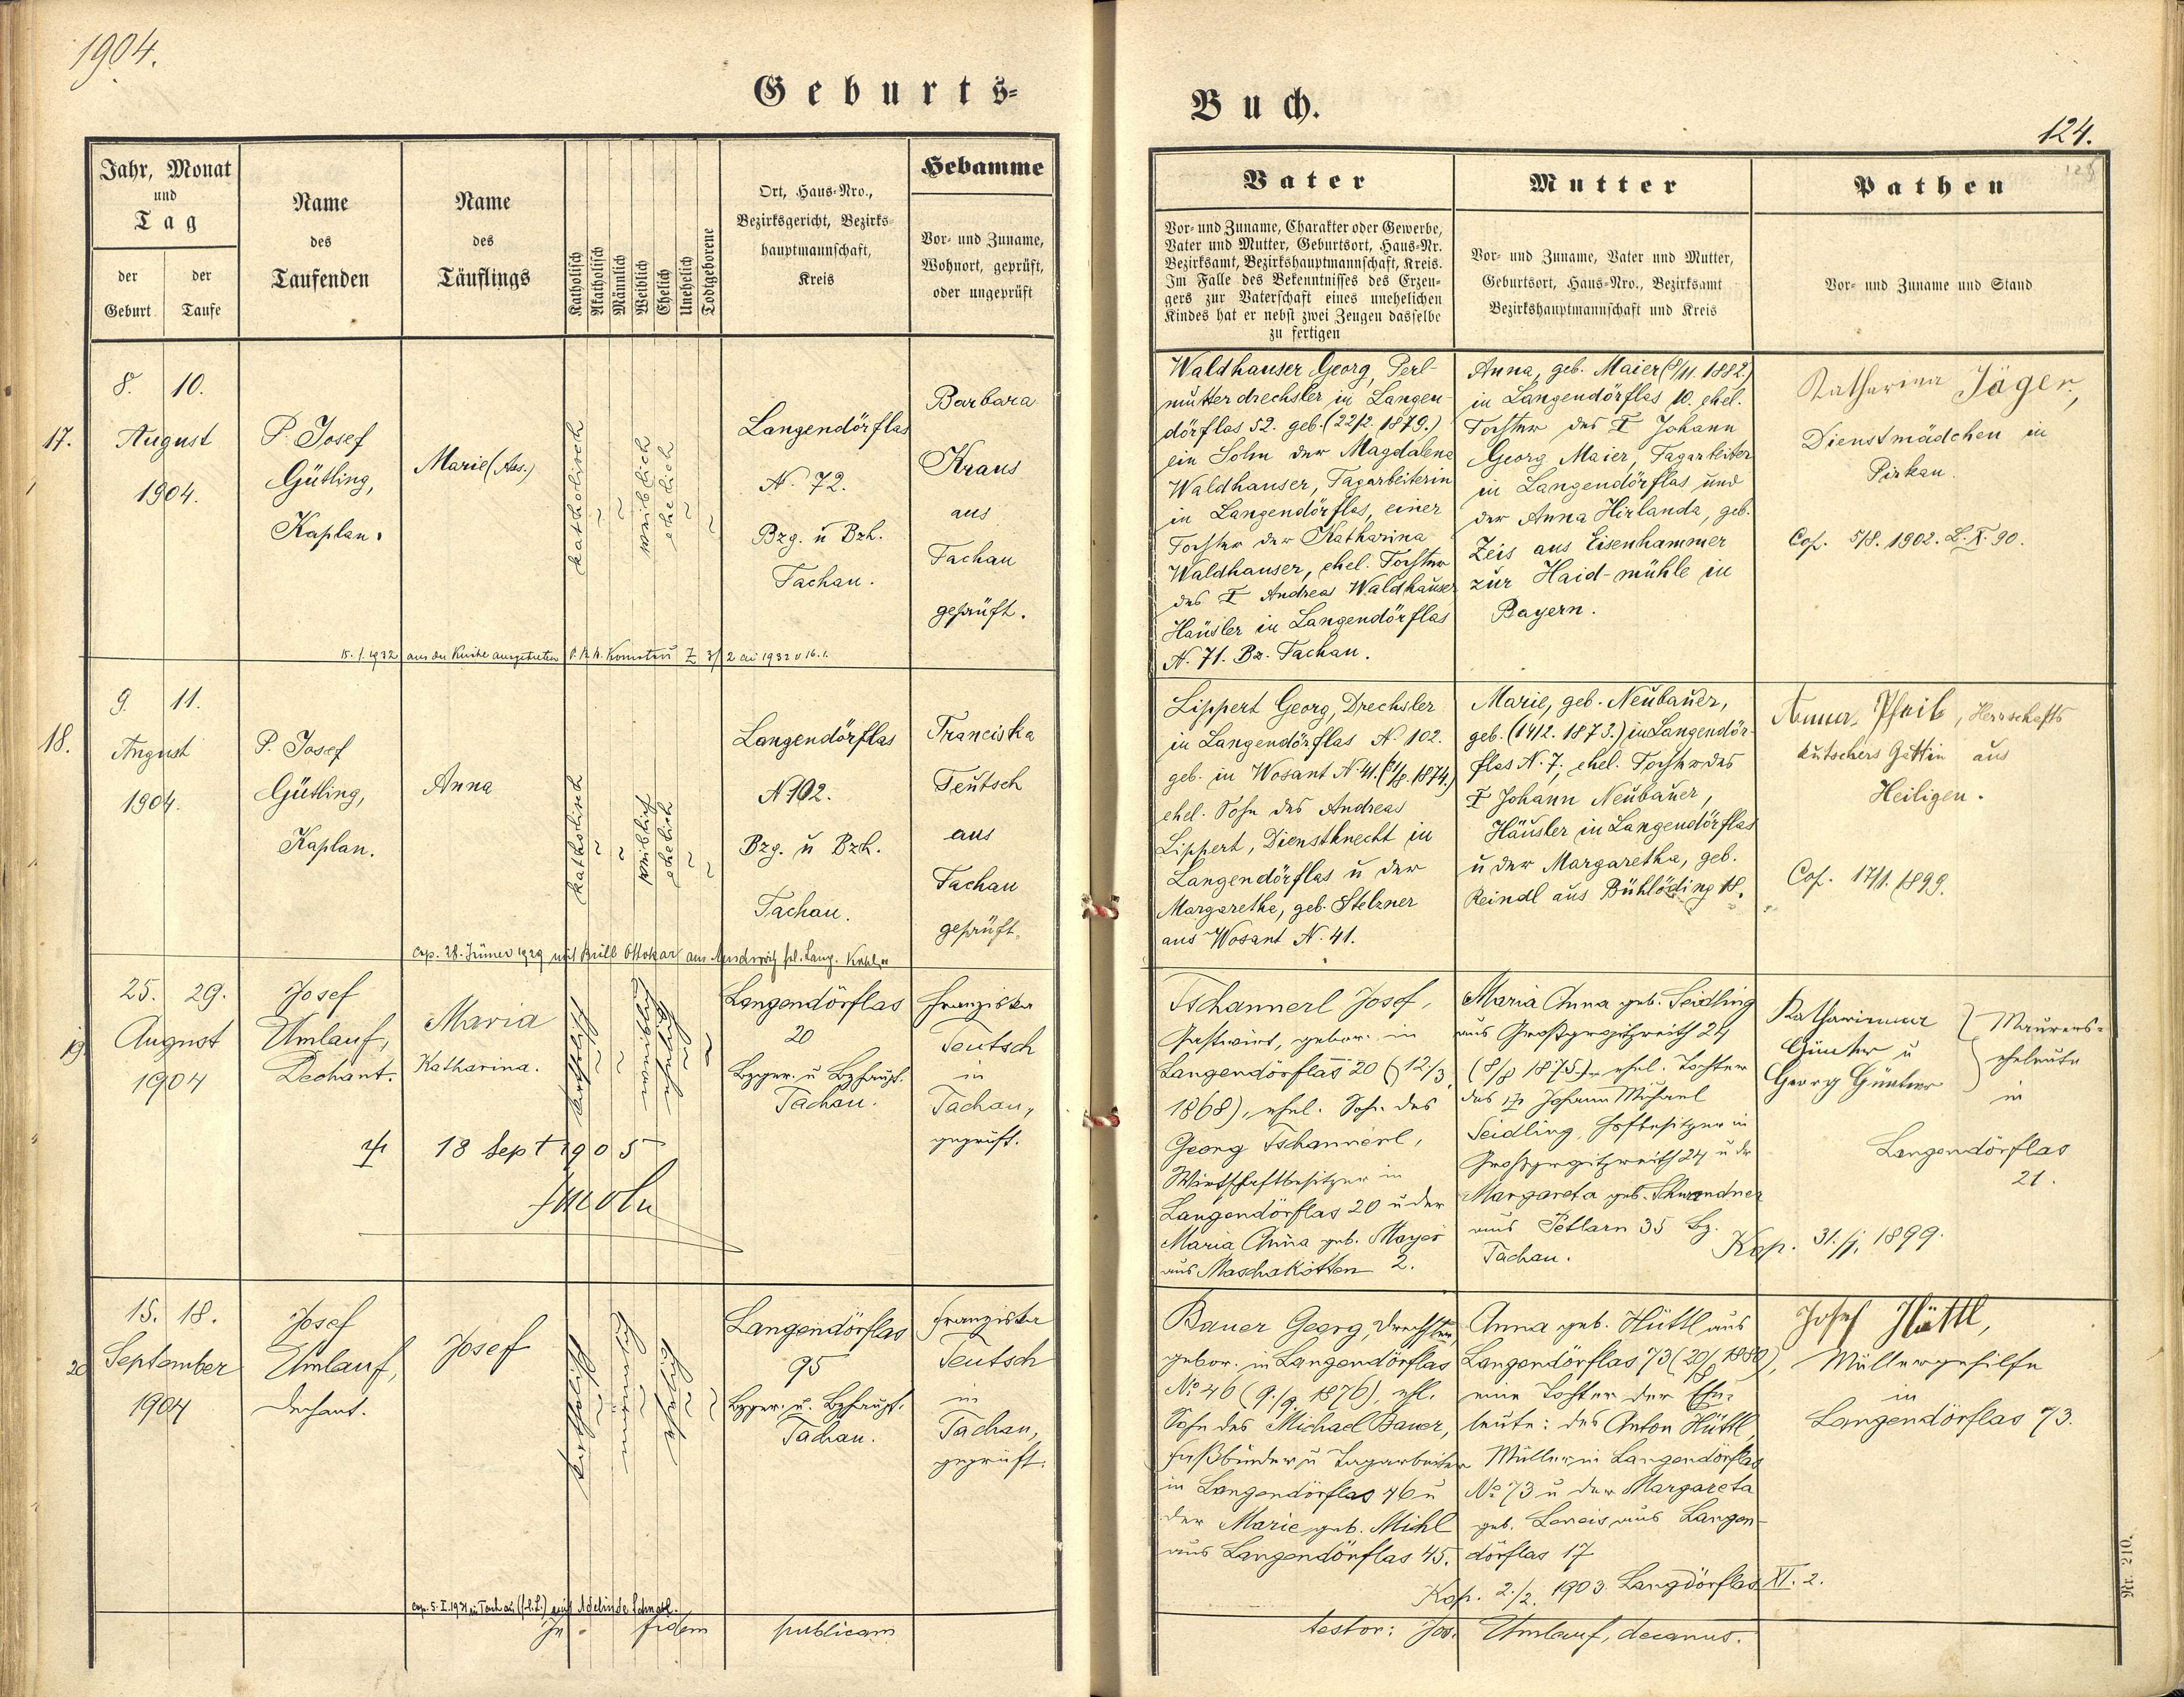 1904.
Geburts-
Jahr, Monat
und
Tag
der
Geburt
der
Taufe
Name
des
Taufenden
Name
des
Täuflings
Katholisch
Akatholisch
Männlich
Weiblich
Ehelich
Unehelich
Todtgeborene
Ort, Haus-Nro.,
Bezirksgericht, Bezirks-
hauptmannschaft,
Kreis
Hebamme
Vor- und Zuname,
Wohnort, geprüft,
oder ungeprüft
17.
8. 10.
August
1904.
P. Josef
Gütling,
Kaplan.
Marie (Ass.)
katholisch
weiblich
ehelich
Langendörflas
N. 72.
Bzg. u Bzh.
Tachau.
Barbara
Kraus
aus
Tachau
geprüft.
15. 1. 1932 aus der Kirche ausgetreten
18.
9. 11.
August
1904.
P. Josef
Gütling,
Kaplan.
Anna
katholisch
weiblich
ehelich
Langendörflas
N. 102.
Bzg. u Bzh.
Tachau.
Franciska
Teutsch
aus
Tachau
geprüft.
cop. 28. Jänner 1929 mit Brill Ottokar aus
19.
25. 29.
August
1904
Josef
Umlauf,
Dechant.
Maria
Katharina.
katholisch
weiblich
ehelich
Langendörflas
20
Bzger. u Bzhaupt.
Tachau.
Franziska
Teutsch
in
Tachau,
geprüft.
18 Sept 1905
20
15. 18.
September
1904
Josef
Umlauf,
Dechant.
Josef
katholisch
männlich
ehelich
Langendörflas
95
Bzger. u. Bzhaupt.
Tachau.
Franziska
Teutsch
in
Tachau,
geprüft.
In fidem publicam
Buch.
124.
Vater
Vor- und Zuname, Charakter oder Gewerbe,
Vater und Mutter, Geburtsort, Haus-Nr.
Bezirksamt, Bezirkshauptmannschaft, Kreis.
Im Falle des Bekenntnisses des Erzeu-
gers zur Vaterschaft eines unehelichen
Kindes hat er nebst zwei Zeugen dasselbe
zu fertigen
Mutter
Vor- und Zuname, Vater und Mutter,
Geburtsort, Haus-Nro., Bezirksamt
Bezirkshauptmannschaft und Kreis
Pathen
Vor- und Zuname und Stand
Waldhauser Georg, Perl-
mutterdrechsler in Langen-
dörflas 52. geb. (22/2. 1879.)
ein Sohn der Magdalena
Waldhauser, Tagarbeiterin
in Langendörflas, einer
Tochter der Katharina
Waldhauser, ehel. Tochter
des † Andreas Waldhauser
Häusler in Langendörflas
N. 71. Bz. Tachau.
Anna, geb. Maier (8/11. 1882.)
in Langendörflas 10. ehel.
Tochter des † Johann
Georg Maier, Tagarbeiter
in Langendörflas und
der Anna Hirlanda, geb.
Zeis aus Eisenhammer
zur Haid-mühle in
Bayern.
Katharina Jäger,
Dienstmädchen in
Pirkau.
Cop. 5/8. 1902. L. X. 90.
Lippert Georg, Drechsler
in Langendörflas N. 102.
geb. in Wosant N. 41. 1874.)
ehel. Sohn des Andreas
Lippert, Dienstknecht in
Langendörflas u der
Margaretha, geb. Stelzner
aus Wosant N. 41.
Marie, geb. Neubauer,
geb. (14/2. 1873.) in Langendör-
flas N. 7, ehel. Tochter des
† Johann Neubauer,
Häusler in Langendörflas
u der Margaretha, geb.
Reindl aus Bühlöding 18.
Anna Pfeil, Herrschafts
kutschers Gattin aus
Heiligen.
Cop. 17/1. 1899.
Tschannerl Josef,
Gastwirt, gebor. in
Langendörflas 20 (12/3.
1868), ehel. Sohn des
Georg Tschannerl,
Wirtschaftbesitzer in
Langendörflas 20 u der
Maria Anna geb. Mayer
aus Maschakotten 2.
Maria Anna geb. Seidling
aus Großgropitzreith 24
(8/8 1875), ehel. Tochter
des † Johann Michael
Seidling, Hofbesitzer in
Großgropitzreith 24 u dr
Margareta geb. Schwandner
aus Petlarn 35 Bz.
Tachau.
Katharina
Günter u
Georg Günter
Maurers-
eheleute
in
Langendörflas
21.
Kop. 31./1. 1899.
Bauer Georg, Drechsler,
gebor. in Langendörflas
No 46 (9./9. 1876), ehl.
Sohn des Michael Bauer,
Faßbinder u Tagarbeiter
in Langendörflas 46 u
der Marie geb. Michl
aus Langendörflas 45.
Anna geb. Hüttl aus
Langendörflas 73 (20/8 1880),
eine Tochter der Ehe-
leute: des Anton Hüttl,
Müller in Langendörflas
No 73 u der Margareta
geb. Lereis aus Langen-
dörflas 17
Kop. 2./2. 1903. Langdörflas XI. 2.
Josef Hüttl,
Müllergehilfe
in
Langendörflas 73.
testor: Jos. Umlauf, decanus.
Nr. 210.